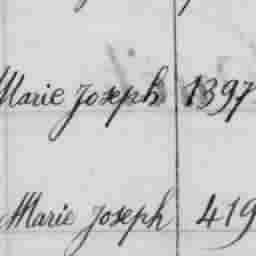 Marie Joseph 1397
Marie Joseph 419